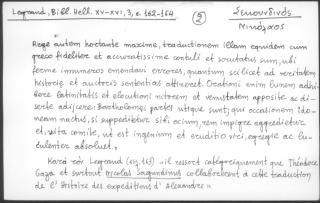 Legrand, Bibl. Hell. XV-XVI, 3, σ. 162-164
②
Σεκουνδινός
Νικόλαος
Rege autem hortante maxime, traductionem illam equidem cum
greco fideliter et accuratissime contuli et scrutatus sum, ubi
ferme innumeros emendavi errores, quantum scilicet ad veritatem
historie et auctoris sententias attineret. Orationi enim lumen adhi-
bere latinitatis et elocutioni nitorem et venustatem apposite ac di-
serte adjicere: Bartholomei partes utique sunt; qui occasionem ido-
neam nactus, si suppeditetur sibi ocium, rem impigre aggredietur
et, vita comite, ut est ingenium et eruditio viri, egregie ac lu-
culenter absolvet.
Κατὰ τὸν Legrand (σελ. 163) «il ressort catégoriquement que Théodore
Gaza et surtout Nicolas Sagundinus collaborèrent à cette traduction
de l' Histoire des expeditions d' Alexandre»